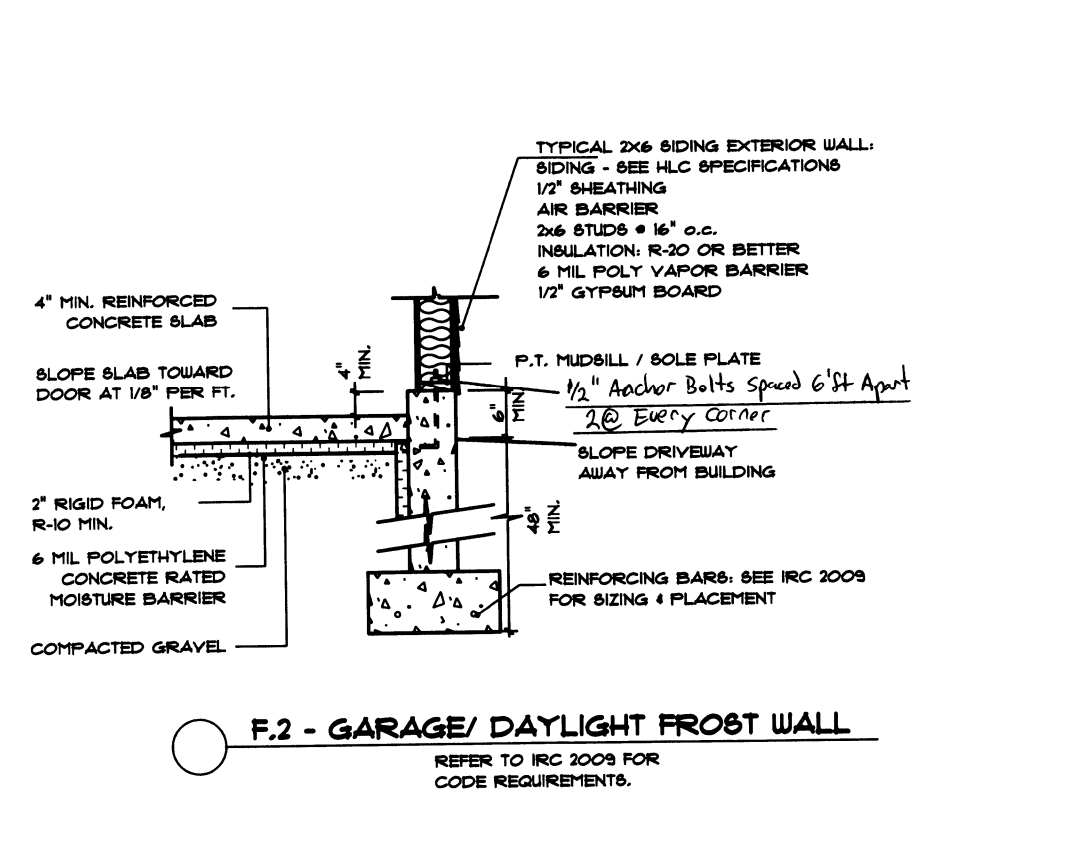 TYPICAL 2X6 SIDING EXTERIOR WALL:
SIDING - SEE HLC SPECIFICATIONS
1/2" SHEATHING
AIR BARRIER
2x6 STUDS @ 16" o.c.
INSULATION: R-20 OR BETTER
6 MIL POLY VAPOR BARRIER
1/2" GYPSUM BOARD
4" MIN. REINFORCED
CONCRETE SLAB
SLOPE SLAB TOWARD
DOOR AT 1/8" PER FT.
4"
MIN.
P.T. MUDSILL / SOLE PLATE
1/2" Anchor Bolts Spaced 6'ft Apart
2@ Every Corner
6"
MIN
SLOPE DRIVEWAY
AWAY FROM BUILDING
2" RIGID FOAM,
R-10 MIN.
48"
MIN.
6 MIL POLYETHYLENE
CONCRETE RATED
MOISTURE BARRIER
REINFORCING BARS: SEE IRC 2009
FOR SIZING & PLACEMENT
COMPACTED GRAVEL
F.2 - GARAGE/ DAYLIGHT FROST WALL
REFER TO IRC 2009 FOR
CODE REQUIREMENTS.